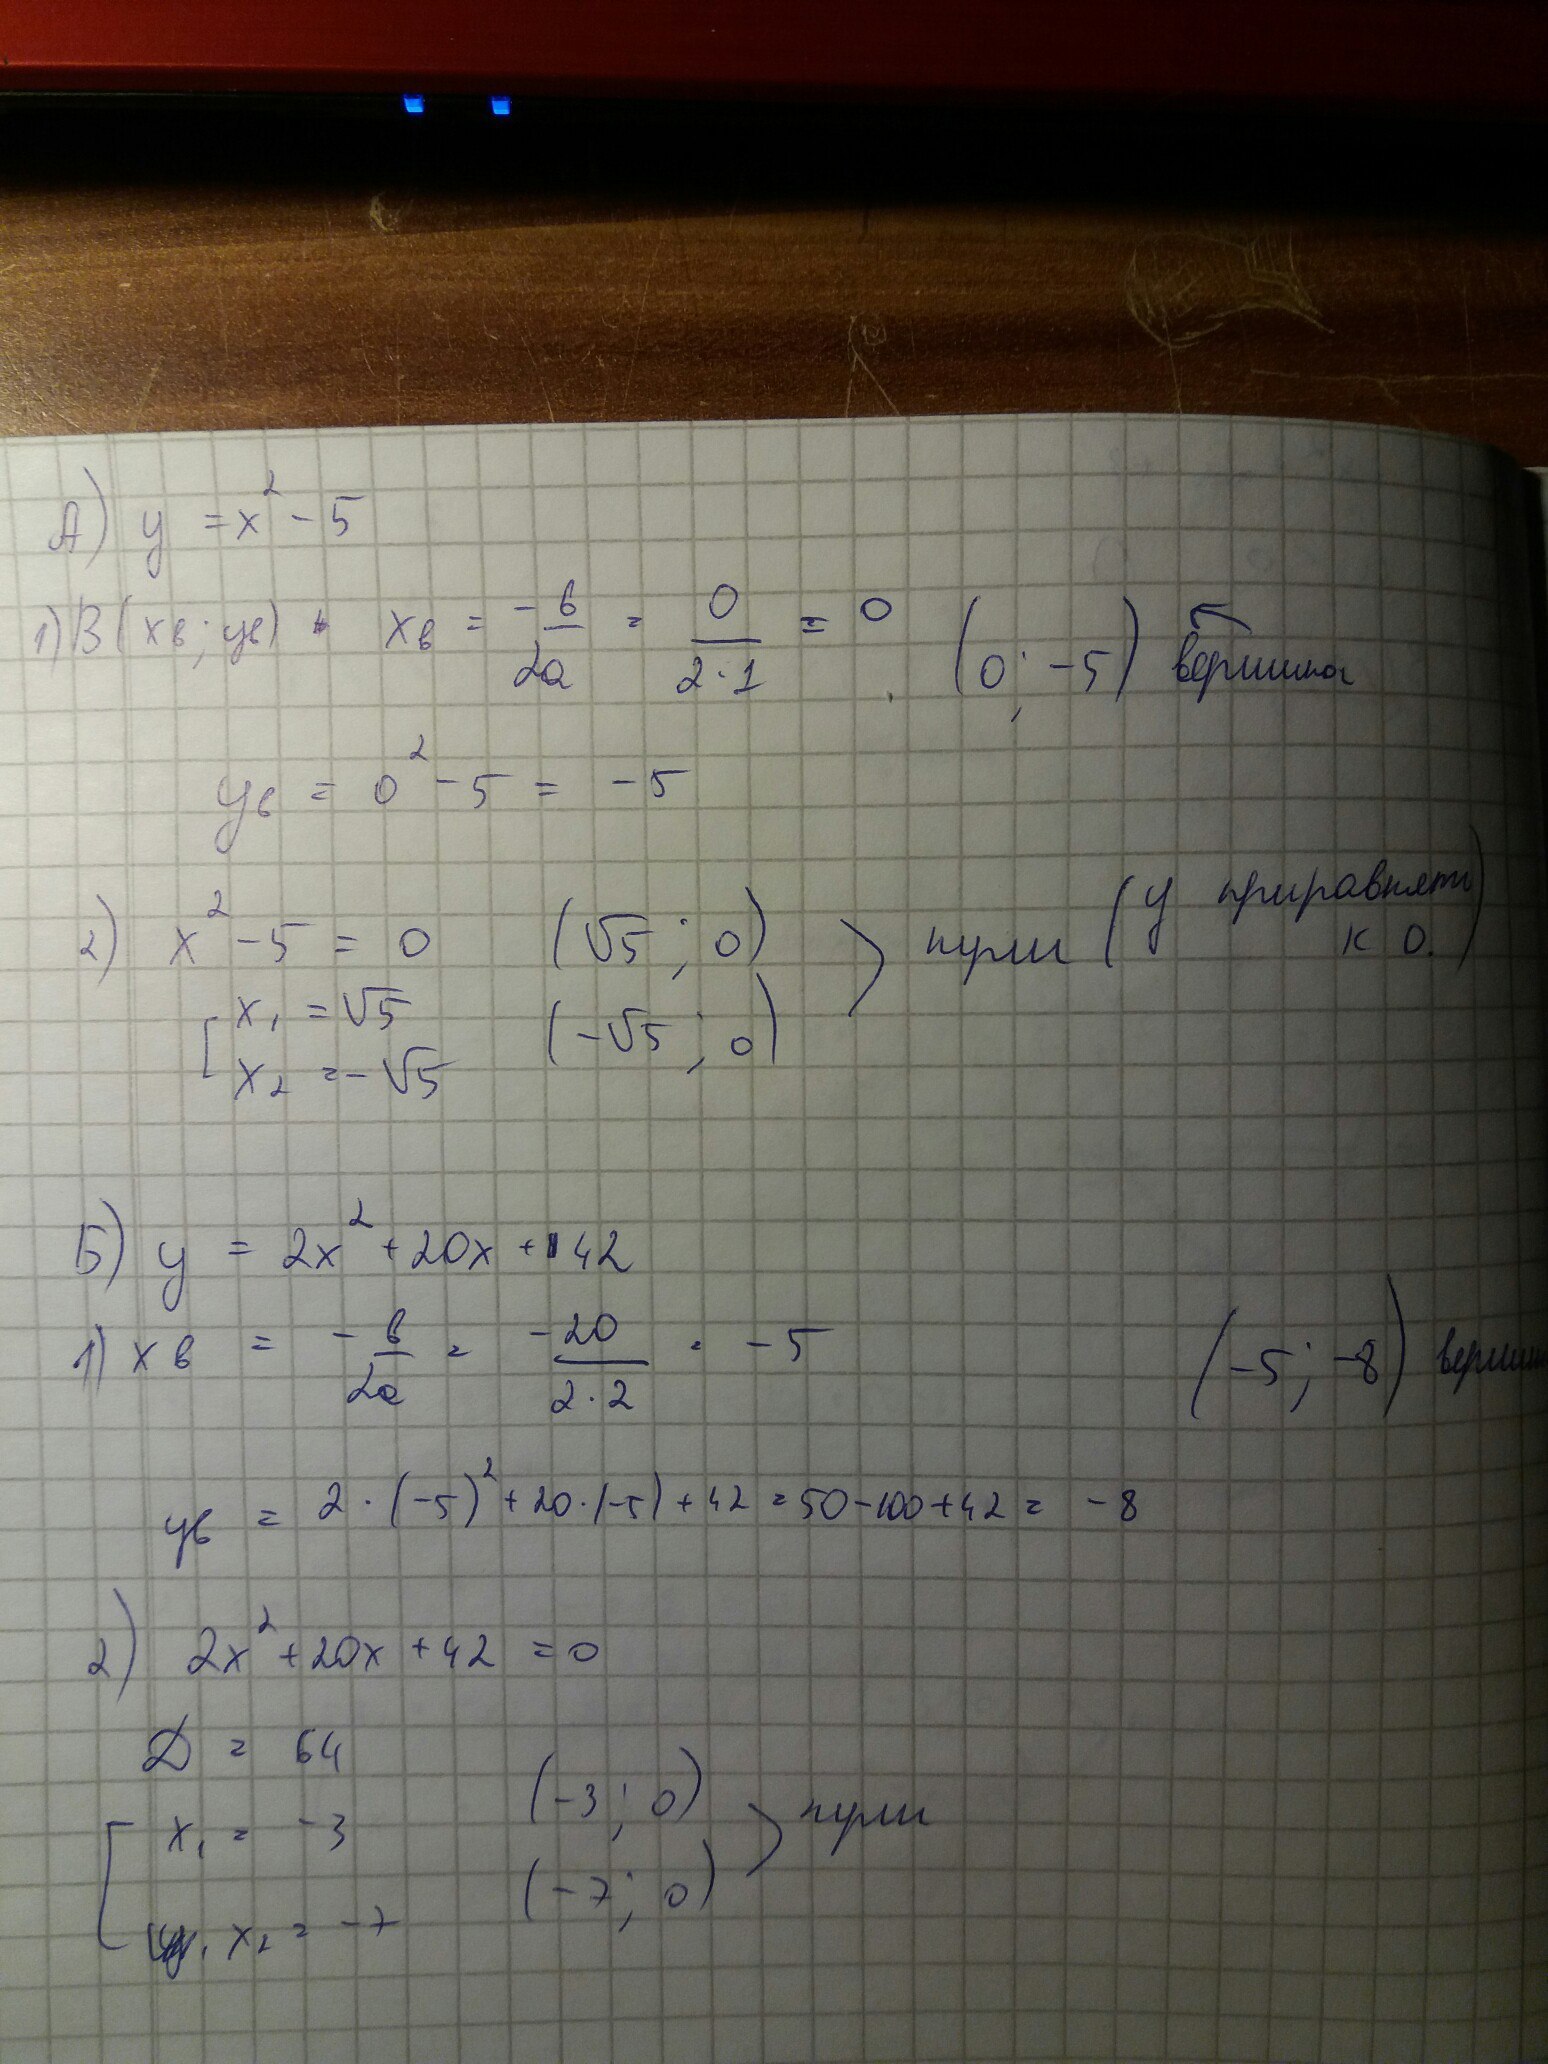 А) y = x² - 5
1) В(xв; yв) xв = -в/2a = 0/2·1 = 0 (0; -5) вершина
yв = 0² - 5 = -5
2) x² - 5 = 0 (√5; 0) нули (y приравнять к 0.)
x₁ = √5 (-√5; 0)
x₂ = -√5
Б) y = 2x² + 20x + 42
1) xв = -в/2a = -20/2·2 = -5 (-5; -8) вершин
yв = 2·(-5)² + 20·(-5) + 42 = 50 - 100 + 42 = -8
2) 2x² + 20x + 42 = 0
D = 64
x₁ = -3 (-3; 0) нули
x₂ = -7 (-7; 0)